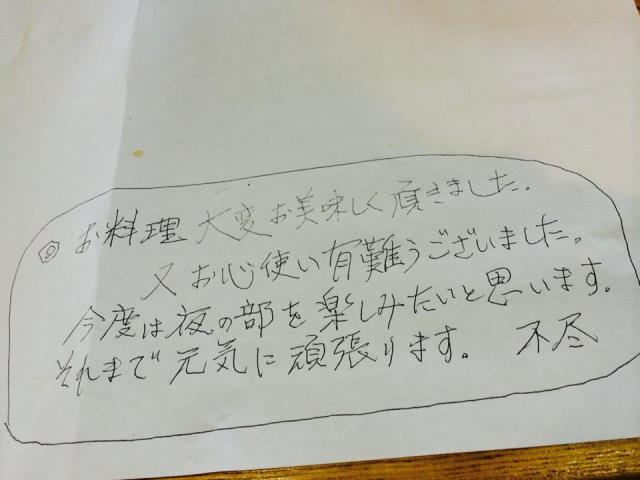 ◎ お料理 大変お美味しく頂きました.
又お心使い有難うございました。
今度は夜の部を楽しみたいと思います。
それまで元気に頑張ります。 不尽